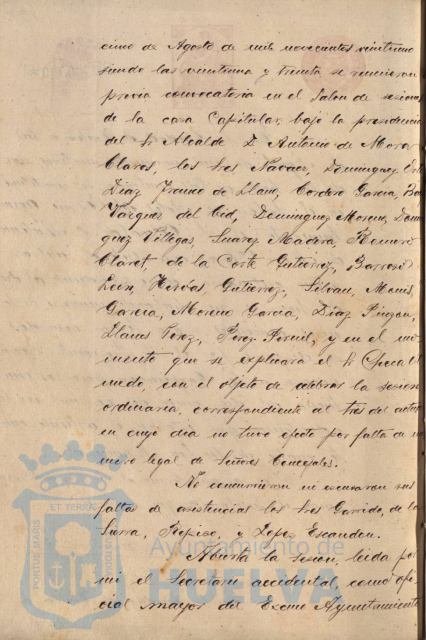 cinco de Agosto de mil novecientos veintiuno
siendo las veintiuna y treinta se reunieron
previa convocatoria en el Salon de sesiones
de la casa Capitular, bajo la presidencia
del Sr Alcalde D. Antonio de Mora
Claros, los Sres Navaez, Dominguez
Diaz Franco de Llanes, Cordero Garcia,
Vazquez del Cid, Dominguez Moreno, Domin
guez Villegas, Suarez Madera, Romero
Claret, de la Corte Gutierrez, Barroso
Leon, Hervas Gutierrez, Silvan, Monis
Garcia, Moreno Garcia, Diaz Pinzon,
Llanes Perez, Perez, y en el mo
mento que se explicará el Sr
con el objeto de celebrar la sesion
ordinaria, correspondiente al tres del actual
en cuyo dia no tuvo efecto por falta de nu
mero legal de Señores Concejales.
No concurrieron ni escusaron sus
faltas de asistencias los Sres Garrido, de la
Surra, y Lopez Escandon.
Abierta la sesion, leida por
mi el Secretario accidental, como ofi
cial mayor del Excmo Ayuntamiento
PORTUS MARIS ET TERRAE CUSTODIA
Ayuntamiento de
HUELVA